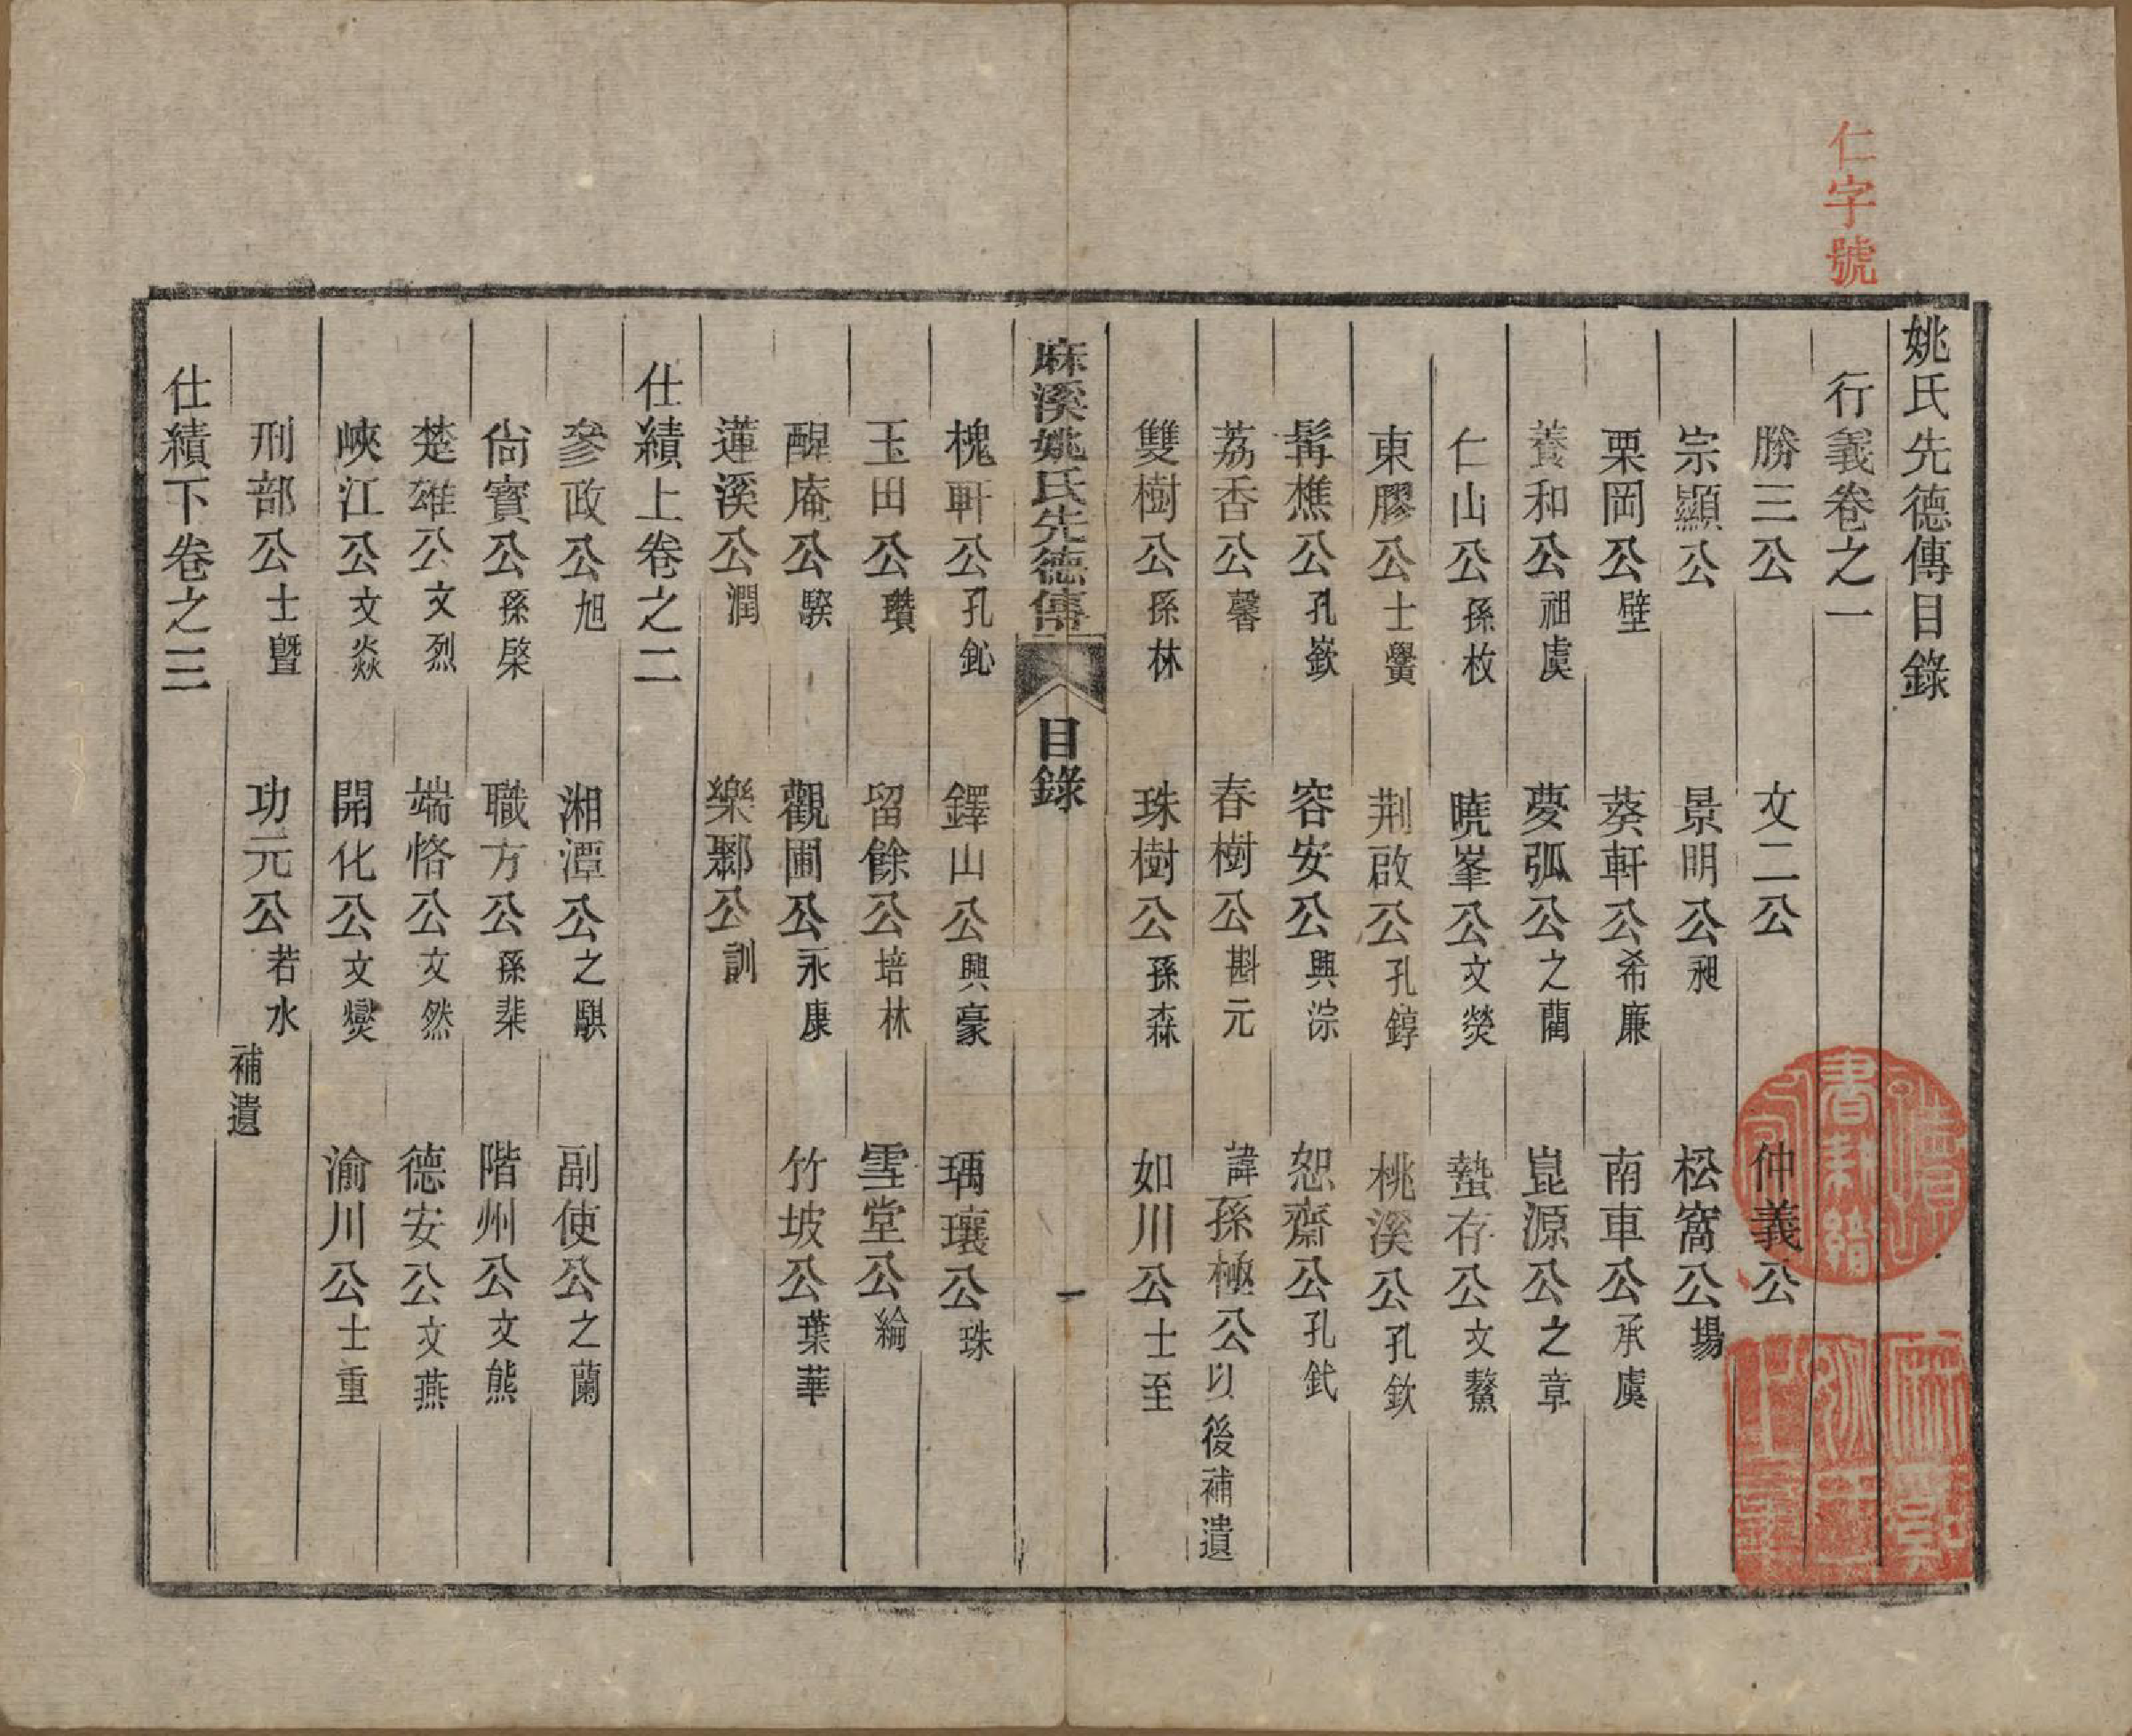 仁字號
姚氏先德傳目錄
行義卷之一
勝三公 文二公 仲義公
宗顯公 景明公昶 松窩公場
栗岡公壁 葵軒公希廉 南車公承虞
養和公祖虞 夢弧公之蘭 崑源公之章
仁山公孫枚 曉峯公文熒 蟄存公文鰲
東膠公士黌 荆啟公孔錞 桃溪公孔欽
髯樵公孔嶔 容安公興淙 恕齋公孔釴
荔香公馨 春樹公斟元 諱孫極公以後補遺
雙樹公孫林 珠樹公孫森 如川公士至
麻溪姚氏先德傳 目錄 一
槐軒公孔鈊 鐸山公興豪 瑀瓖公珠
玉田公瓚 留餘公培林 雪堂公綸
醒庵公騤 觀圃公永康 竹坡公葉華
蓮溪公潤 樂鄹公訓
仕績上卷之二
參政公旭 湘潭公之騏 副使公之蘭
尙寶公孫棨 職方公孫棐 階州公文熊
楚雄公文烈 端恪公文然 德安公文燕
峽江公文焱 開化公文燮 渝川公士重
刑部公士曁 功元公若水 補遺
仕績下卷之三